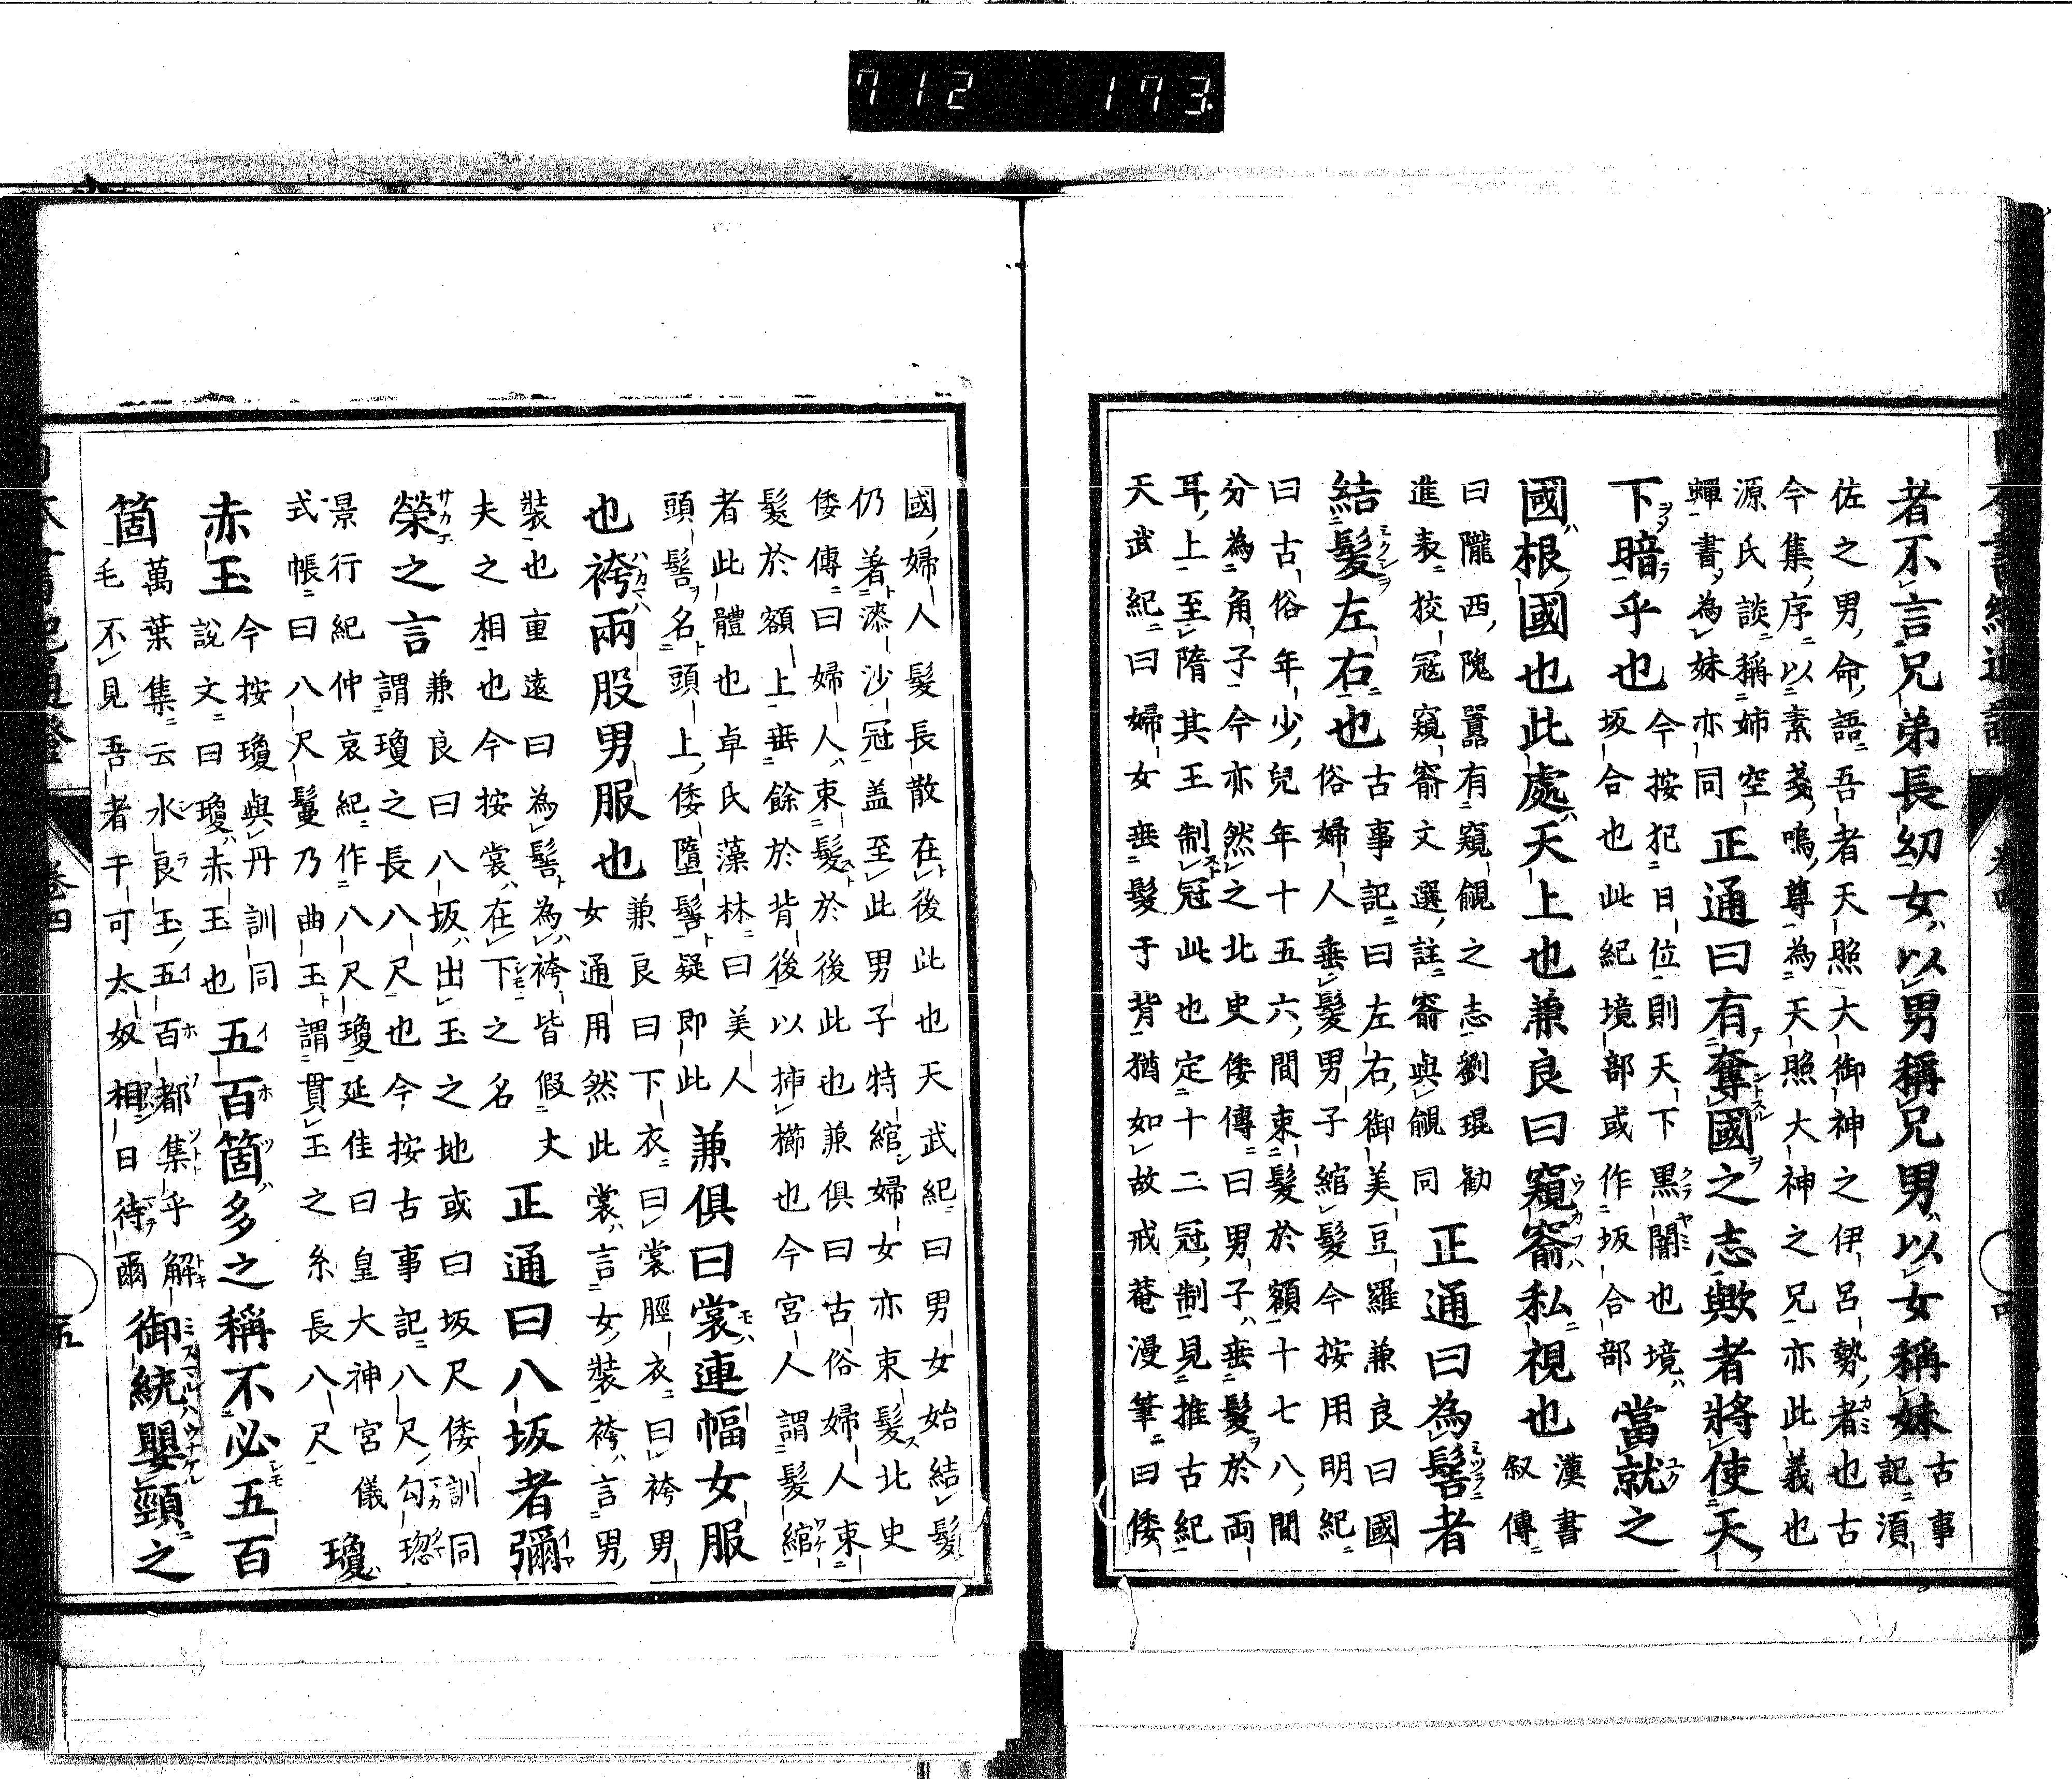 712 173
者不言兄弟長幼女以男稱兄男以女稱妹
古事
記湏
佐之男命語吾者天照大御神之伊呂勢者也古
今集序以素戔嗚尊為天照大神之兄亦此義也
源氏談稱姉空
蟬書為妹亦同
正通曰有奪國之志歟者將使天
下暗乎也
今按犯日位則天下黒闇也境
坂合也此紀境部或作坂合部
當就之
國根國也此處天上也兼良曰窺窬私視也
漢書
叙傳
曰隴西隗囂有窺覦之志劉琨勧
進表狡冦窺窬文選註窬與覦同
正通曰為髻者
結髮左右也
古事記曰左右御美豆羅兼良曰國
俗婦人垂髮男子綰髮今按用明紀
曰古俗年少兒年十五六間束髮於額十七八間
分為角子今亦然之北史倭傳曰男子垂髮於両
耳上至隋其王制冠此也定十二冠制見推古紀
天武紀曰婦女垂髮于背猶如故戒菴漫筆曰倭
國婦人髮長散在後此也天武紀曰男女始結髮
仍著漆沙冠盖至此男子特綰婦女亦束髮北史
倭傳曰婦人束髮於後此也兼俱曰古俗婦人束
髮於額上垂餘於背後以挿櫛也今宮人謂髮綰
者此體也卓氏藻林曰美人
頭髻名頭上倭墮髻疑即此
兼俱曰裳連幅女服
也袴兩股男服也
兼良曰下衣曰裳脛衣曰袴男
女通用然此裳言女裝袴言男
裝也重遠曰為髻為袴皆假大
夫之相也今按裳在下之名
正通曰八坂者彌
榮之言
兼良曰八坂出玉之地或曰坂尺倭訓同
謂瓊之長八尺也今按古事記八尺勾璁
景行紀仲哀紀作八尺瓊延佳曰皇大神宮儀
式帳曰八尺鬘乃曲玉謂貫玉之糸長八尺
瓊
赤玉
今按瓊與丹訓同
說文曰瓊赤玉也
五百箇多之稱不必五百
箇
萬葉集云水良玉五百都集乎解
毛不見吾者干可太奴相日待爾
御統嬰頸之
卷四